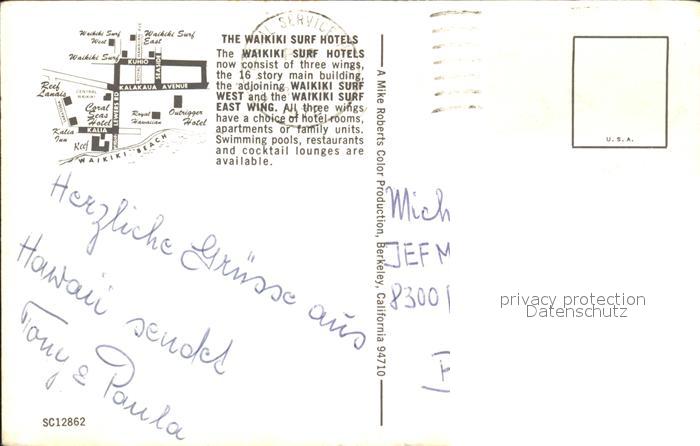 Waikiki Surf West
Waikiki Surf East
Waikiki Surf
KUHIO
SEASIDE
KALAKAUA AVENUE
Reef Lanais
CENTRAL WAIKIKI
LEWERS RD
Coral Seas Hotel
Royal Hawaiian
Outrigger Hotel
Kalia Inn
KALIA
Reef
WAIKIKI BEACH
THE WAIKIKI SURF HOTELS
The WAIKIKI SURF HOTELS
now consist of three wings,
the 16 story main building,
the adjoining WAIKIKI SURF
WEST and the WAIKIKI SURF
EAST WING. All three wings
have a choice of hotel rooms,
apartments or family units.
Swimming pools, restaurants
and cocktail lounges are
available.
Herzliche Grüsse aus
Hawaii sendet
Tony & Paula
SC12862
A Mike Roberts Color Production, Berkeley, California 94710
SERVICE
U.S.A.
Mich
JEF M
8300
privacy protection
Datenschutz